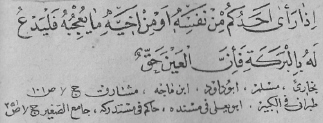 اِذَا رَأٰى اَحَدُكُمْ مِنْ نَفْسِهٖ اَوْ مِنْ اَخِيْهِ مَا يُعْجِبُهٗ فَلْيَدْعُ
لَهٗ بِالْبَرَكَةِ فَاِنَّ الْعَيْنَ حَقٌّ
بخاری، مسلم، ابوداود، ابن ماجہ، مشارق ج ١ ص ١٠
طبرانی فی الکبیر، ابویعلی فی مسندہ، حاکم فی مستدرکہ، جامع الصغیر ج ١